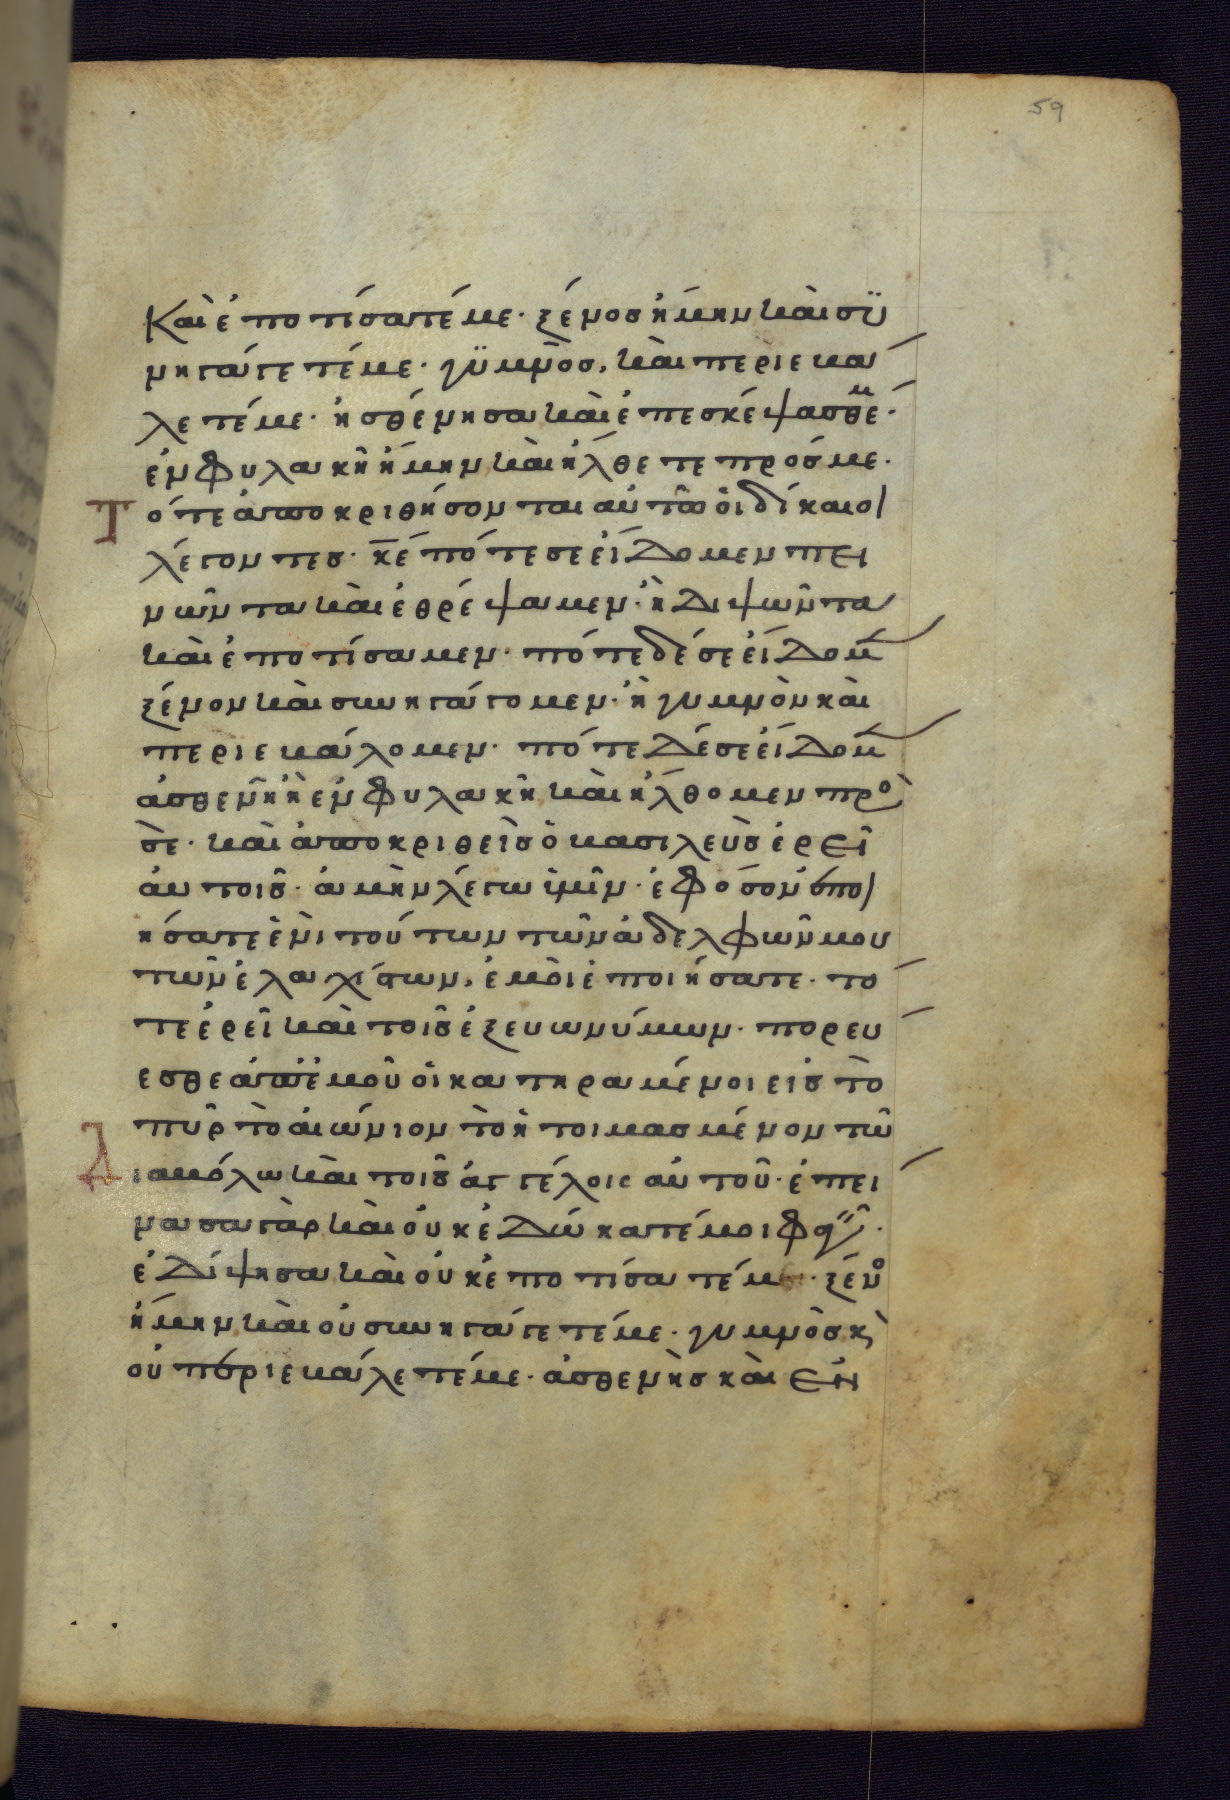 59
Καὶ ἐποτίσατέ με· ξένος ἤμην καὶ συ
νηγάγετέ με· γυμνὸς, καὶ περιεβά
λετέ με· ἠσθένησα καὶ ἐπεσκέψασθέ μ·
ἐν φυλακῇ ἤμην καὶ ἤλθετε πρός με.
Τότε ἀποκριθήσονται αὐτῶ οἱ δίκαιοι
λέγοντες· κε πότε σε εἴδομεν πει
νῶντα καὶ ἐθρέψαμεν· ἢ διψῶντα
καὶ ἐποτίσαμεν· πότε δέ σε εἴδομ
ξένον καὶ συνηγάγομεν· ἢ γυμνὸν καὶ
περιεβάλομεν· πότε δέ σε εἴδομ
ἀσθενῆ ἢ ἐν φυλακῇ καὶ ἤλθομεν πρὸ
ς σε· καὶ ἀποκριθεὶς ὁ βασιλεὺς ἐρεῖ
αὐτοῖς· ἀμὴν λέγω ὑμῖν· ἐφ ὅσον ἐποι
ήσατε ἑνὶ τούτων τῶν ἀδελφῶν μου
τῶν ἐλαχίστων, ἐμοὶ ἐποιήσατε· τό
τε ἐρεῖ καὶ τοῖς ἐξ ευωνύμων· πορευ
εσθε ἀπ' ἐμοῦ οἱ κατηραμένοι εἰς τὸ
πῦρ τὸ αἰώνιον τὸ ἡτοιμασμένον τῶ
Διαβόλω καὶ τοῖς ἀγγέλοις αὐτοῦ· ἐπεί
νασα γὰρ καὶ οὐκ ἐδώκατέ μοι φαγ·
ἐδίψησα καὶ οὐκ ἐποτίσατέ με· ξένο
ἤμην καὶ οὐ συνηγάγετέ με· γυμνὸς κ
οὐ περιεβάλετέ με· ἀσθενὴς καὶ ἐν